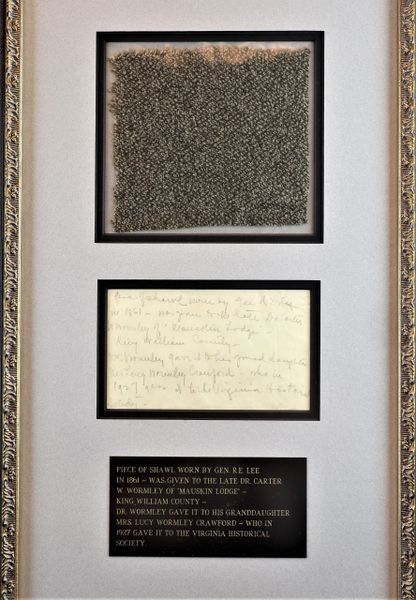 shawl worn by Gen R. E. Lee
in 1861 — was given to the late Dr Carter
W Wormley of "Mauskin Lodge" —
King William County —
Dr. Wormley gave it to his grand daughter
Mrs Lucy Wormley Crawford — who in
1927 gave it to the Virginia Historical
Society —
PIECE OF SHAWL WORN BY GEN. R.E. LEE
IN 1861 – WAS GIVEN TO THE LATE DR. CARTER
W. WORMLEY OF "MAUSKIN LODGE" –
KING WILLIAM COUNTY –
DR. WORMLEY GAVE IT TO HIS GRANDDAUGHTER
MRS. LUCY WORMLEY CRAWFORD – WHO IN
1927 GAVE IT TO THE VIRGINIA HISTORICAL
SOCIETY.